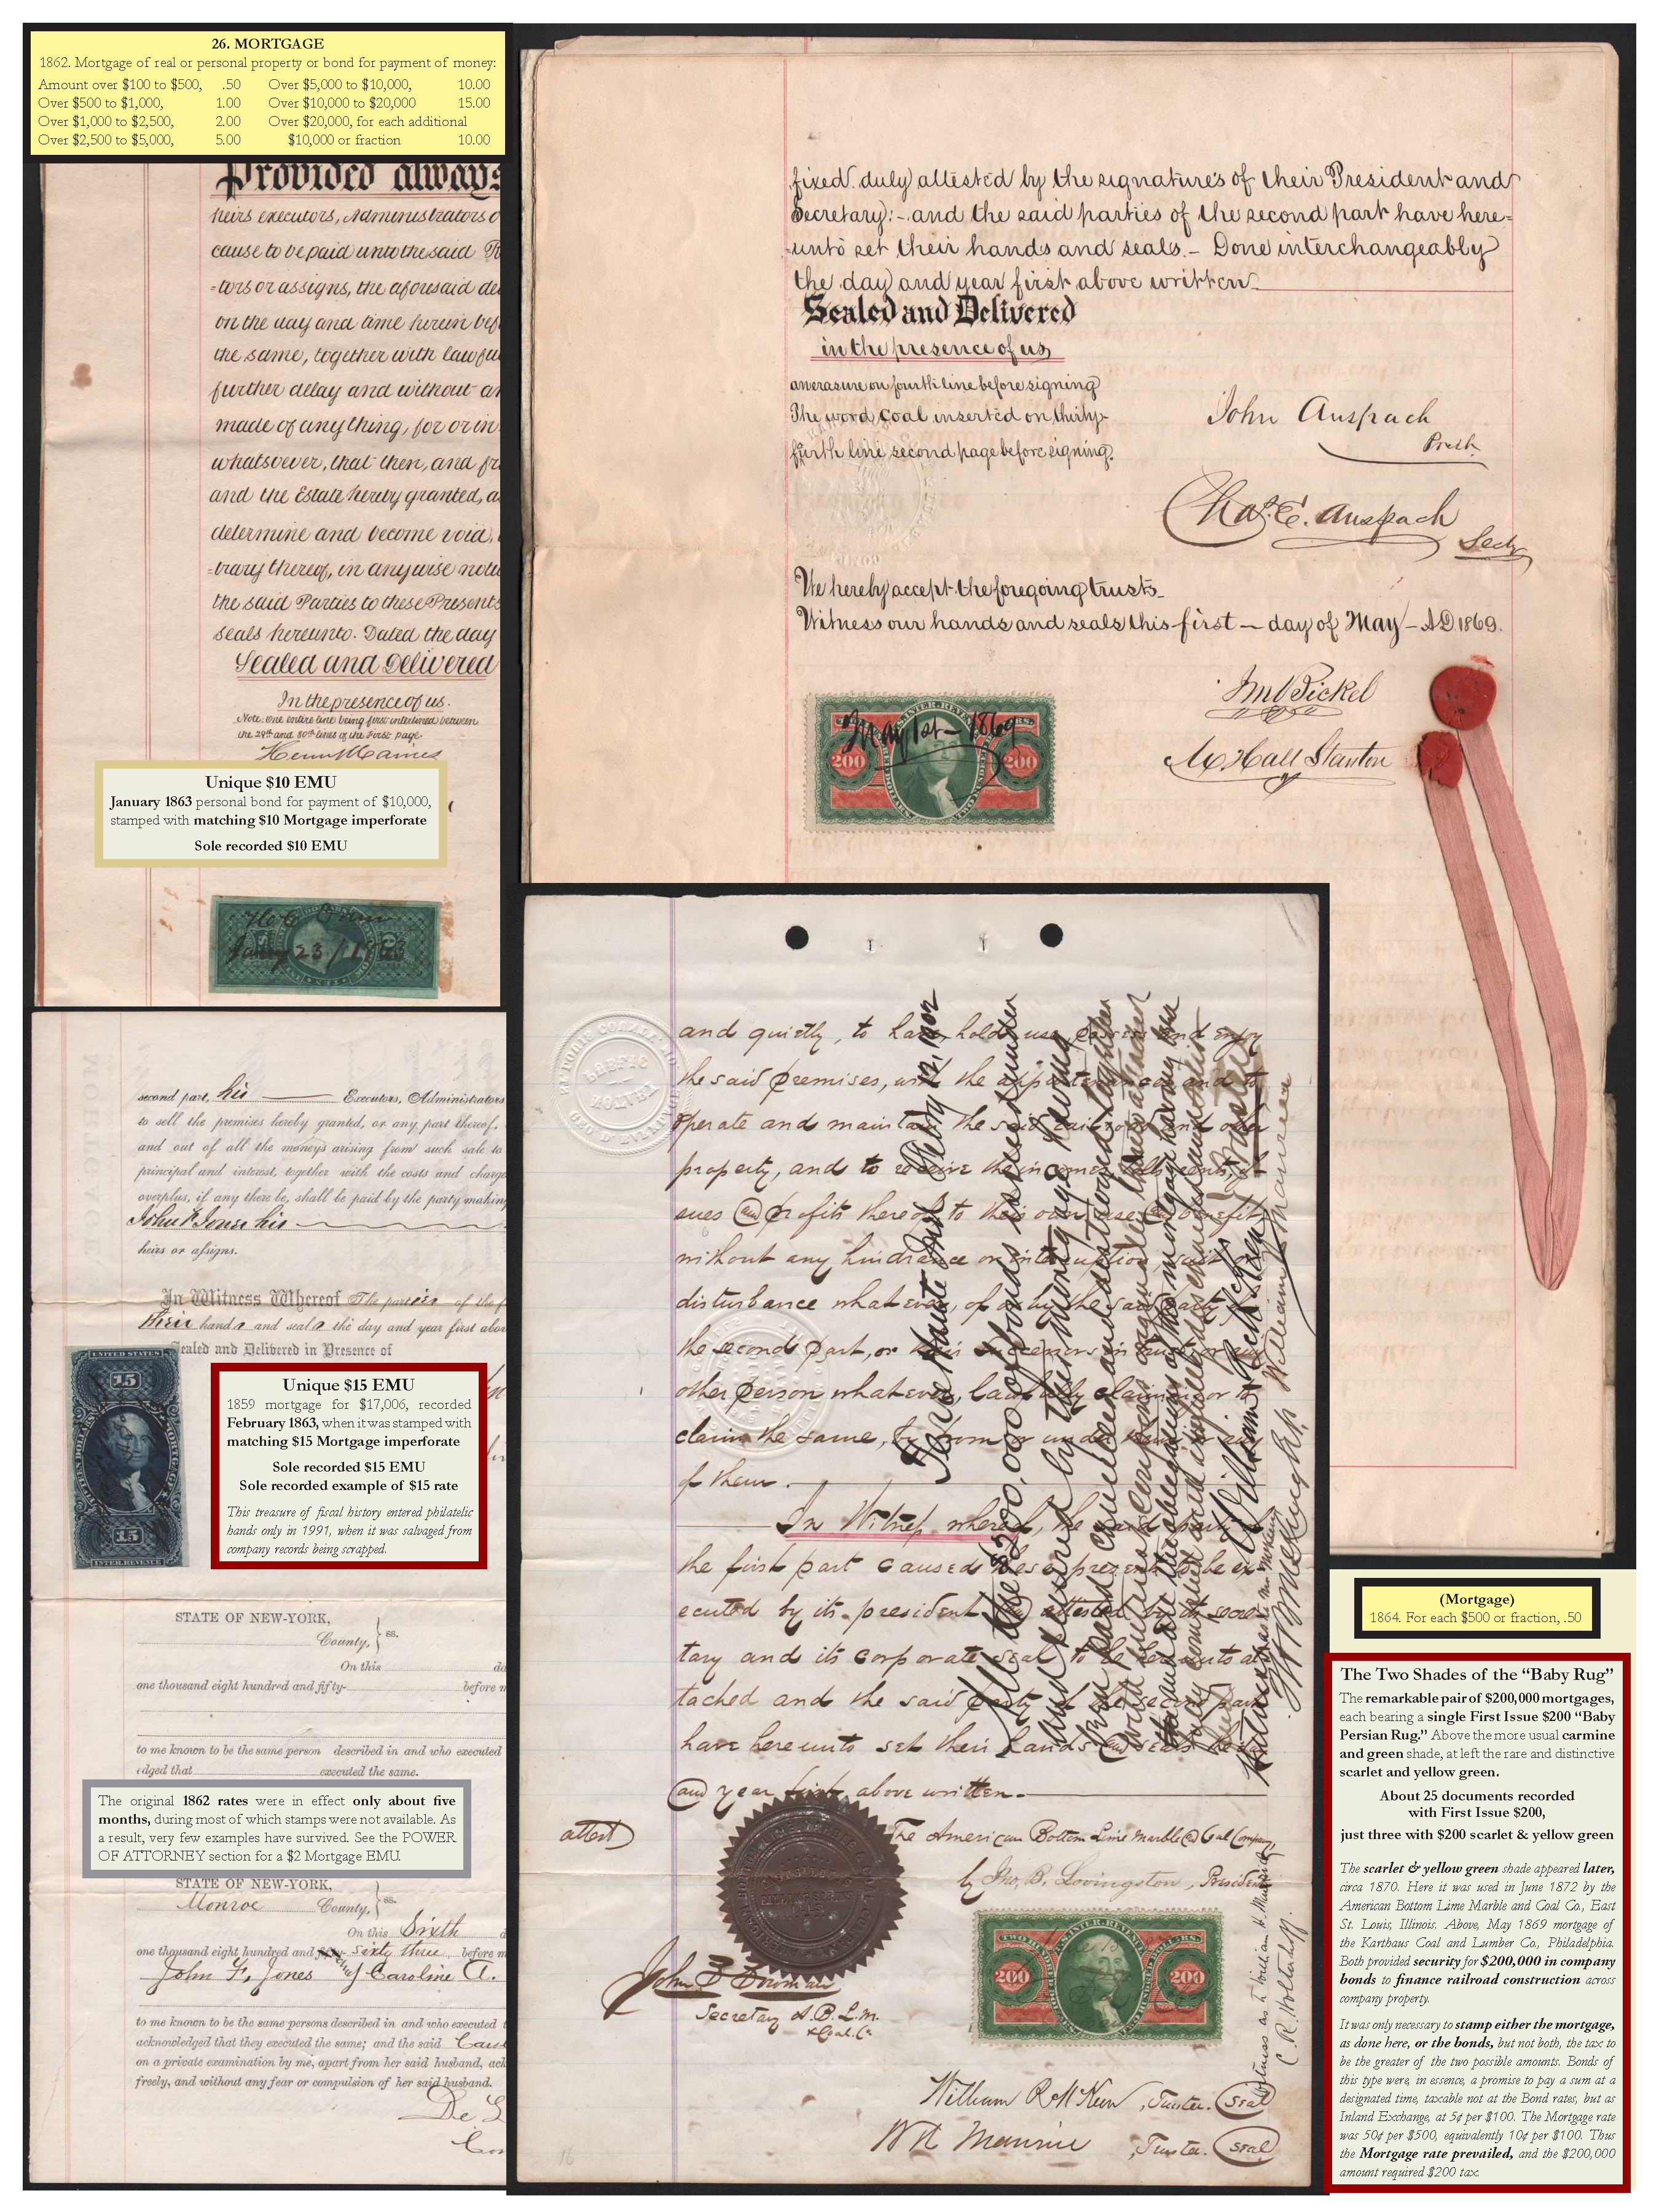 26. MORTGAGE
1862. Mortgage of real or personal property or bond for payment of money:
Amount over $100 to $500, .50 Over $5,000 to $10,000, 10.00
Over $500 to $1,000, 1.00 Over $10,000 to $20,000 15.00
Over $1,000 to $2,500, 2.00 Over $20,000, for each additional
Over $2,500 to $5,000, 5.00 $10,000 or fraction 10.00
Provided always
heirs executors, Administrators o
cause to be paid unto the said
-tors or assigns, the aforesaid de
on the day and time herein bef
the same, together with lawfu
further delay and without an
made of anything, for or in
whatsoever, that then, and fr
and the Estate hereby granted, a
determine and become void,
-trary thereof, in anywise notw
the said Parties to these Presents
seals hereunto. Dated the day
Sealed and Delivered
In the presence of us.
Note: one entire line being first interlined between
the 29th and 30th lines of the First page.
Unique $10 EMU
January 1863 personal bond for payment of $10,000,
stamped with matching $10 Mortgage imperforate
Sole recorded $10 EMU
fixed duly attested by the signatures of their President and
Secretary:- and the said parties of the second part have here=
-unto set their hands and seals.- Done interchangeably
the day and year first above written.
Sealed and Delivered
in the presence of us
an erasure on fourth line before signing
The word Coal inserted on thirty-
fourth line second page before signing.
John Anspach
Presdt.
Chas. E. Anspach
Secty
We hereby accept the foregoing trusts-
Witness our hands and seals this first - day of May - AD 1869.
M Hall Stanton
May 1st - 1869
200 200
second part, his Executors, Administrators
to sell the premises hereby granted, or any part thereof,
and out of all the moneys arising from such sale to
principal and interest, together with the costs and charge
overplus, if any there be, shall be paid by the party making
John F. Jones his
heirs or assigns.
In Witness Whereof The parties of the f
their hands and seals the day and year first abov
Sealed and Delivered in Presence of
UNITED STATES
15
15
INTER. REVENUE
Unique $15 EMU
1859 mortgage for $17,006, recorded
February 1863, when it was stamped with
matching $15 Mortgage imperforate
Sole recorded $15 EMU
Sole recorded example of $15 rate
This treasure of fiscal history entered philatelic
hands only in 1991, when it was salvaged from
company records being scrapped.
STATE OF NEW-YORK,
County, ss.
On this da
one thousand eight hundred and fifty- before m
to me known to be the same person described in and who executed
edged that executed the same.
The original 1862 rates were in effect only about five
months, during most of which stamps were not available. As
a result, very few examples have survived. See the POWER
OF ATTORNEY section for a $2 Mortgage EMU.
STATE OF NEW-YORK,
Monroe County, ss.
On this Sixth d
one thousand eight hundred and fifty- sixty three before m
John F. Jones & Caroline A.
to me known to be the same persons described in and who executed t
acknowledged that they executed the same; and the said Caro
on a private examination by me, apart from her said husband, ack
freely, and without any fear or compulsion of her said husband.
and quietly, to have, hold, use, possess and enjoy
the said premises, with the appurtenances and to
operate and maintain the said railroad and other
property, and to receive the incomes, tolls, rents, iss-
ues and profits thereof to their own use and benefit
without any hindrance or interruption, suit or
disturbance whatever, of or by the said party of
the second part, or their successors in trust or any
other person whatever, lawfully claiming or to
claim the same, by from or under them or any
of them.
In Witness whereof, the said party of
the first part caused these presents to be ex-
ecuted by its president and attested by its secre-
tary and its corporate seal to be hereunto at
tached and the said party of the second part
have hereunto set their hands and seals the day
and year first above written.
attest
The American Bottom Lime Marble and Coal Company,
by Jno. B. Lovingston, President
Secretary A.B.L.M.
& Coal Co
TWO HUNDRED U.S. INTER. REVENUE DOLLARS.
200 200
William R McKeen, Trustee. Seal
, Trustee. Seal
Terre Haute Ind Feby 12, 1902
(Mortgage)
1864. For each $500 or fraction, .50
The Two Shades of the “Baby Rug”
The remarkable pair of $200,000 mortgages,
each bearing a single First Issue $200 “Baby
Persian Rug.” Above the more usual carmine
and green shade, at left the rare and distinctive
scarlet and yellow green.
About 25 documents recorded
with First Issue $200,
just three with $200 scarlet & yellow green
The scarlet & yellow green shade appeared later,
circa 1870. Here it was used in June 1872 by the
American Bottom Lime Marble and Coal Co., East
St. Louis, Illinois. Above, May 1869 mortgage of
the Karthaus Coal and Lumber Co., Philadelphia.
Both provided security for $200,000 in company
bonds to finance railroad construction across
company property.
It was only necessary to stamp either the mortgage,
as done here, or the bonds, but not both, the tax to
be the greater of the two possible amounts. Bonds of
this type were, in essence, a promise to pay a sum at a
designated time, taxable not at the Bond rates, but as
Inland Exchange, at 5¢ per $100. The Mortgage rate
was 50¢ per $500, equivalently 10¢ per $100. Thus
the Mortgage rate prevailed, and the $200,000
amount required $200 tax.